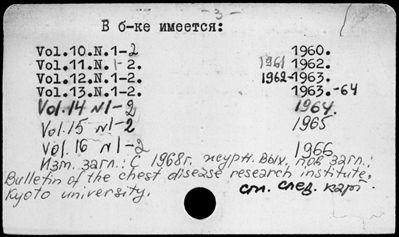 -3-
В б-ке имеется:
Vol.10.N.1-2 1960.
Vol.11.N.1-2. 1961 1962.
Vol.12.N.1-2. 1962-1963.
Vol.13.N.1-2. 1963.-64
Vol.14 N1-2 1964.
Vol.15 N1-2 1965
Vol.16 N1-2 1966
Изм. загл.: С 1968г. журн. вых. под загл.:
Bulletin of the chest disease research institute,
Kyoto university. см. след. карт.